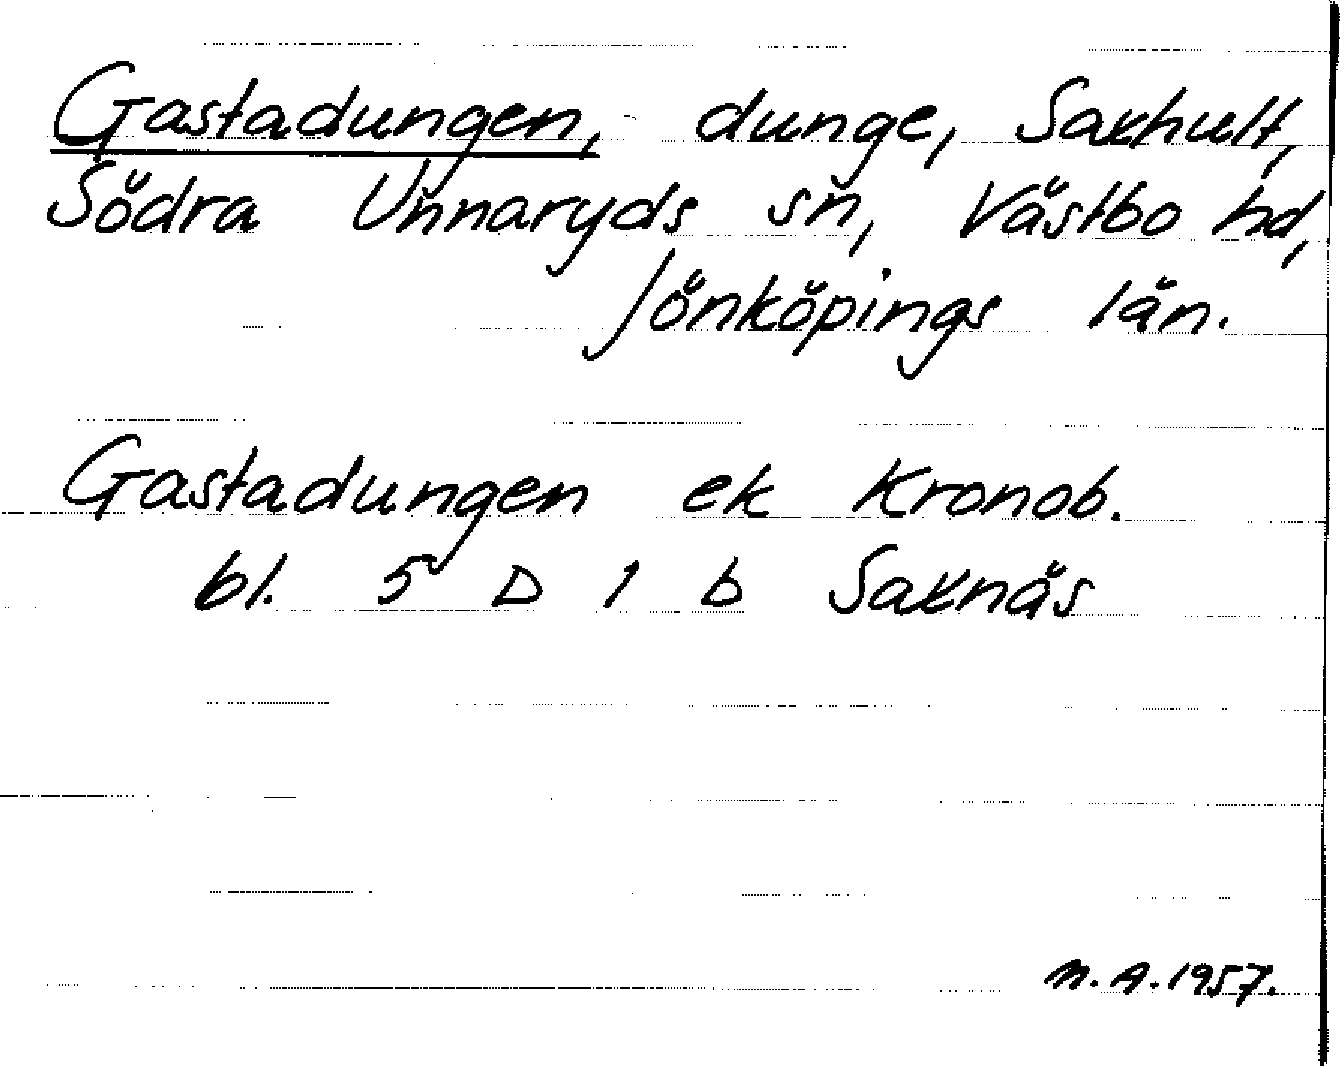 Gastadungen, dunge, Saxhult,
Södra Unnaryds sn, Västbo hd,
Jönköpings län.
Gastadungen ek Kronob.
bl. 5 D 1 b Saxnäs
M. A. 1957.